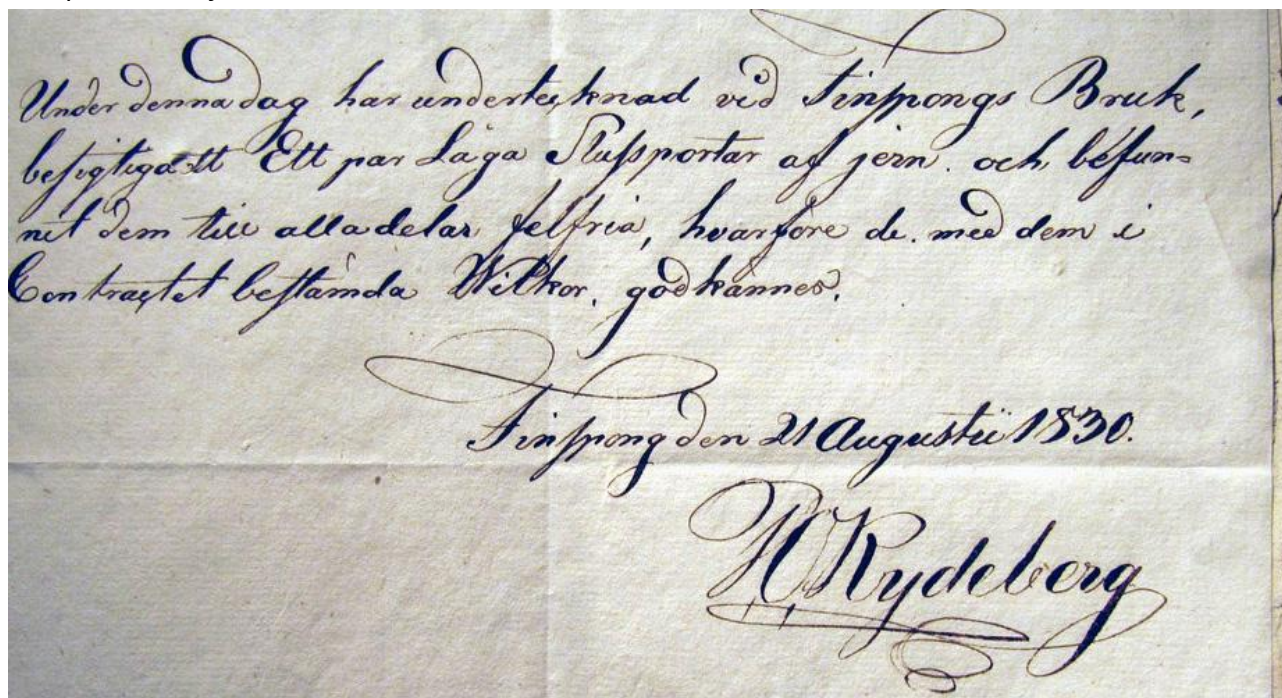 Under denna dag har underteknad vid Finspongs Bruk,
besigtigat Ett par Låga Slussportar af jern. och befun=
nit dem till alla delar felfria, hvarföre de. med dem i
Contractet bestämda Wilkor. godkännes.
Finspong den 21 Augustii 1830.
Rydeberg